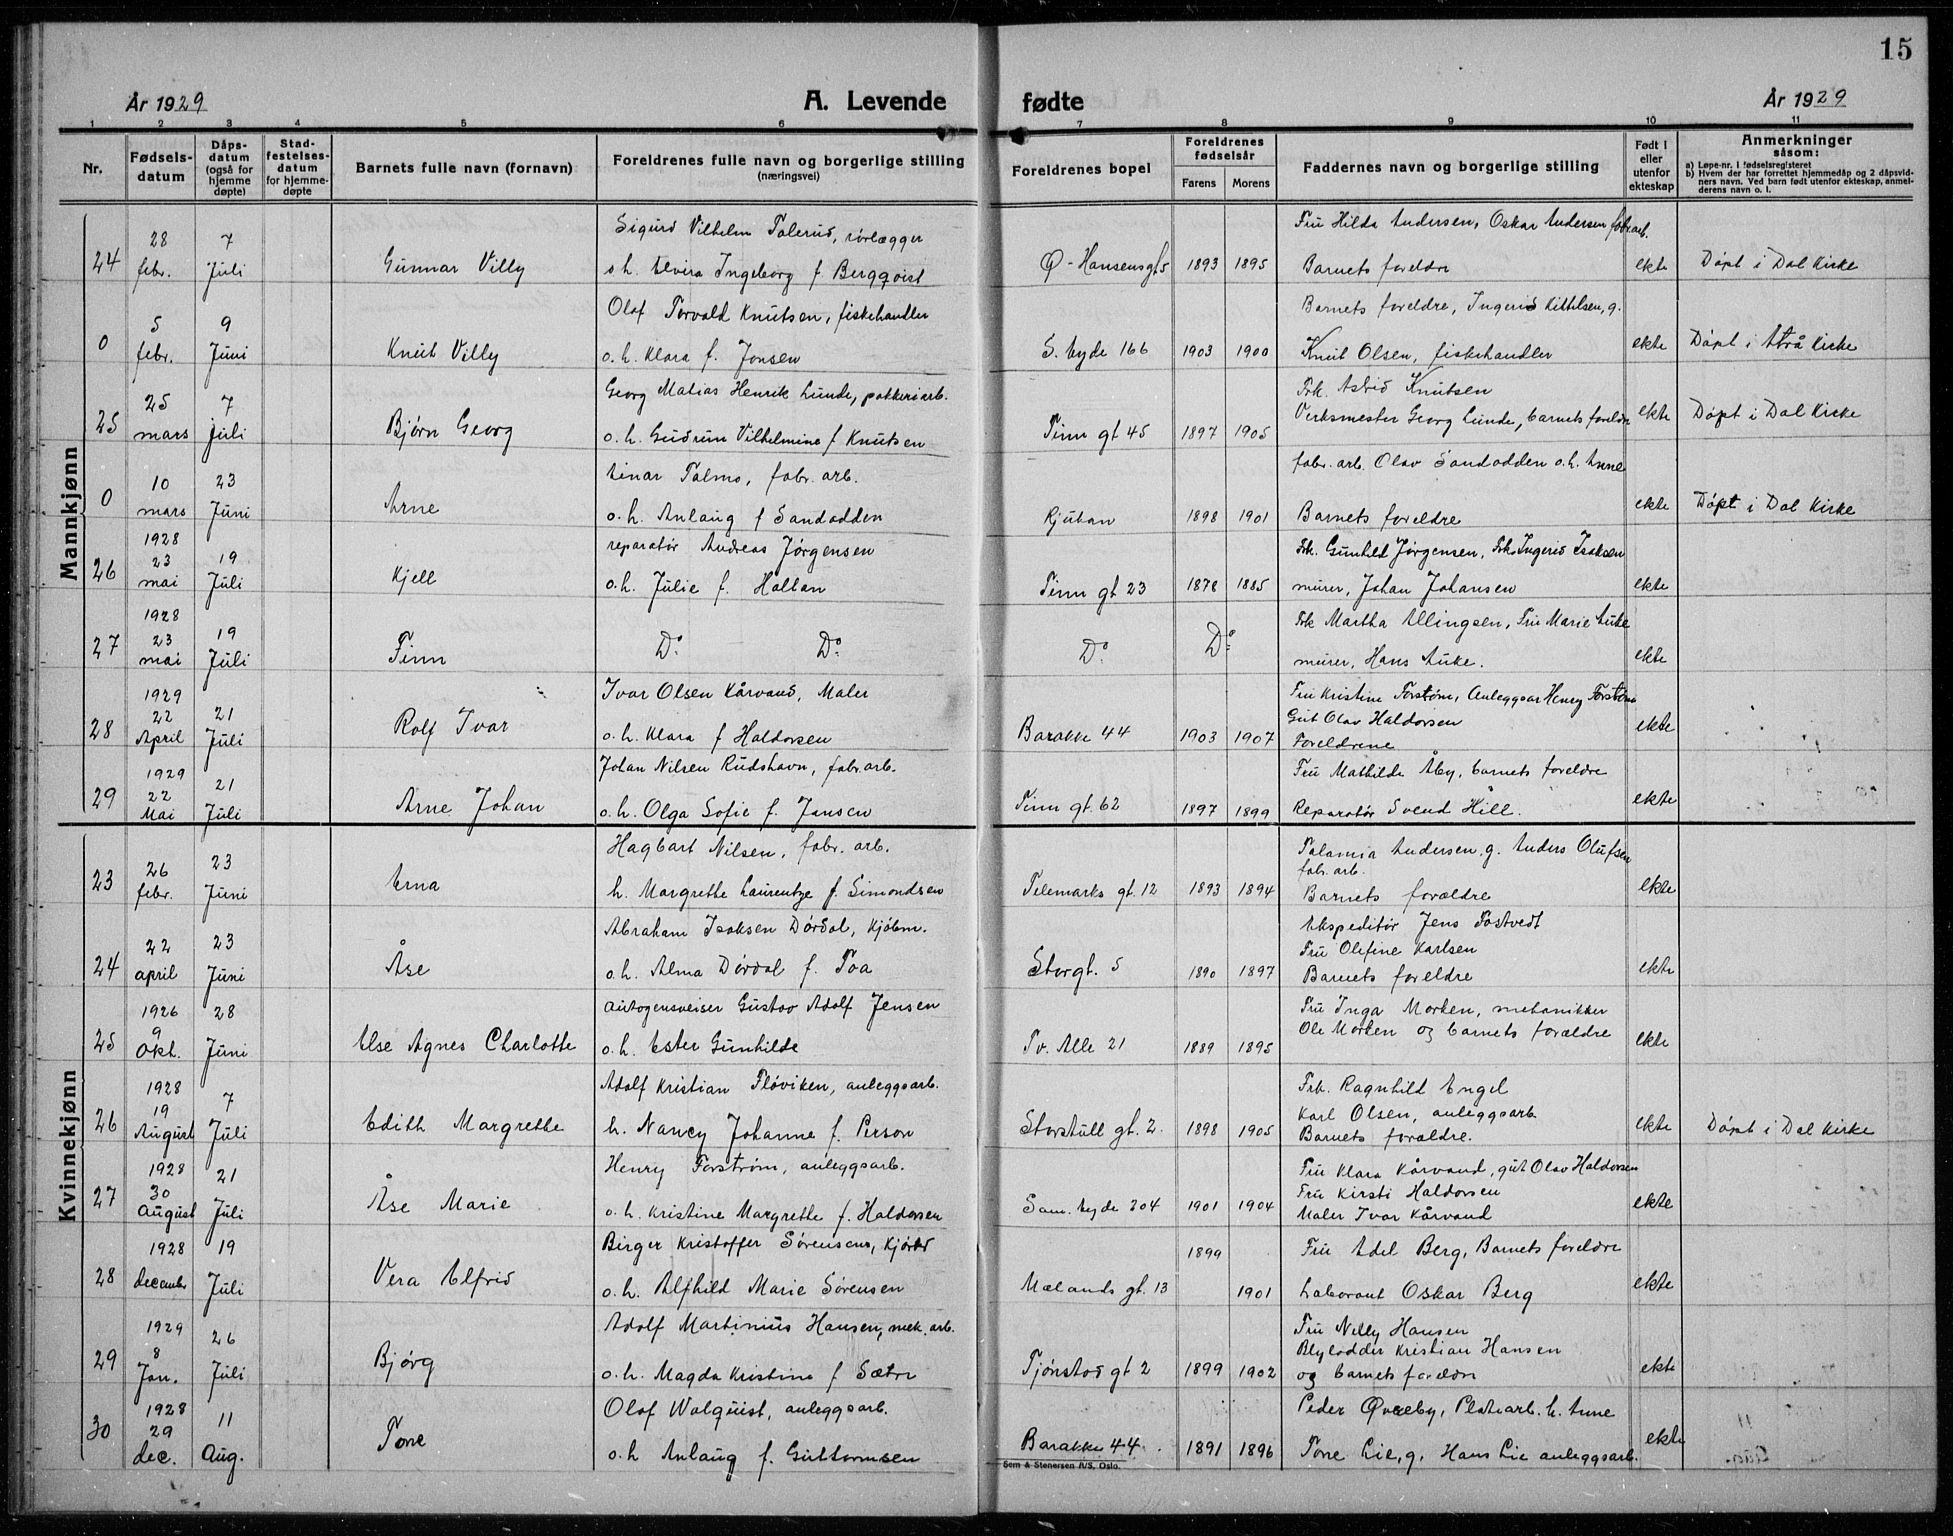 15
År 1929 A. Levende fødte År 1929
1 2 3 4 5 6 7 8 9 10 11
Nr. Fødsels-datum Dåps-datum (også for hjemme døpte) Stad-festelses-datum for hjemme-døpte Barnets fulle navn (fornavn) Foreldrenes fulle navn og borgerlige stilling (næringsvei) Foreldrenes bopel Foreldrenes fødselsår Farens Morens Faddernes navn og borgerlige stilling Født i eller utenfor ekteskap Anmerkninger såsom: a) Løpe-nr. i fødselsregisteret b) Hvem der har forrettet hjemmedåp og 2 dåpsvidners navn. Ved barn født utenfor ekteskap, anmelderens navn o. l.
Mannkjønn
28 7 Sigurd Vilhelm Talerud, rørlægger Fru Hilda Andersen, Oskar Andersen fabr.arb.
24 febr. Juli Gunnar Villy o.h. Elvira Ingeborg f. Bergqvist Ø-Hansensgt 5 1893 1895 Barnets foreldre ekte Døpt i Dal Kirke
5 9 Olaf Torvald Knutsen, fiskehandler Barnets foreldre, Ingerid Kittilsen, g.
0 febr. Juni Knut Villy o.h. Klara f. Jonsen S. byde 166 1903 1900 Knut Olsen, fiskehandler ekte Døpt i Atrå Kirke
25 7 Georg Matias Henrik Lunde, pakkeriarb. Frk. Astrid Knutsen
25 mars juli Bjørn Georg o.h. Gudrun Vilhelmine f Knutsen Tinn gt 45 1897 1905 Verksmester Georg Lunde, barnets foreldre ekte Døpt i Dal Kirke
10 23 Einar Talmo, fabr. arb. fabr. arb. Olav Sandodden o.h. Anne
0 mars Juni Arne o.h. Anlaug f Sandodden Rjukan 1898 1901 Barnets foreldre ekte Døpt i Dal Kirke
1928 reparatør Andreas Jørgensen Frk. Gunhild Jørgensen, Frk. Ingerid Isaksen
26 23 mai 19 Juli Kjell o.h. Julie f. Hallan Tinn gt 23 1878 1885 murer, Johan Johansen ekte
1928 Frk Martha Ellingsen, Fru Marie Auke
27 23 mai 19 Juli Finn Do Do Do Do murer, Hans Auke. ekte
1929 Ivar Olsen Kårvand, Maler Fru Kristine Forstrøm, Anleggsar Henry Forstrøm
28 22 April 21 Juli Rolf Ivar o.h. Klara f Haldorsen Barakke 44 1903 1907 Gut Olav Haldorsen ekte
Foreldrene
1929 Johan Nilsen Rudshavn, fabr.arb. Fru Mathilde Åby, barnets foreldre
29 22 Mai 21 Juli Arne Johan o.h. Olga Sofie f. Jansen Tinn gt. 62 1897 1899 Reparatør Svend Hill. ekte
Kvinnekjønn
26 23 Hagbart Nilsen, fabr. arb. Andersen, g. Anders Olufsen
fabr. arb.
23 febr. Juni Erna h. Margrethe Laurentze f. Simondsen Telemarks gt. 12 1893 1894 Barnets forældre ekte
22 23 Abraham Isaksen Dørdal, Kjøbm. Ekspeditør Jens Fostvedt
Fru Olefine Karlsen
24 april Juni Åse o.h. Alma Dørdal f. Toa Storgt. 5 1890 1897 Barnets foreldre ekte
1926 28 autogensveiser Gustav Adolf Jensen Fru Inga Morken, mekanikker
25 9 Okt. Juni Else Agnes Charlotte o.h. Ester Gunhilde Tv. Alle 21 1889 1895 Ole Morken og barnets forældre ekte
1928 Adolf Kristian Fløviken, anleggsarb. Frk. Ragnhild Engel
Karl Olsen, anleggsarb
26 19 August 7 Juli Edith Margrethe h. Nancy Johanne f. Person Storstull gt. 2. 1898 1905 Barnets forældre. ekte Døpt i Dal Kirke
1928 Henry Forstrøm, anleggsarb. Fru Klara Kårvand, gut Olav Haldorsen
Fru Kirsti Haldorsen
27 30 August 21 Juli Åse Marie o.h. Kristine Margrethe f. Haldorsen Sam. byde 204 1901 1904 Maler Ivar Kårvand ekte
1928 19 Birger Kristoffer Sørensens, 1899 Fru Edel Berg, Barnets foreldre
28 december Juli Vera Elfrid o.h. Alfhild Marie Sørensen Mælands gt. 13 1901 Laborant Oskar Berg ekte
1929 Adolf Martinius Hansen, mek. arb. Fru Nelly Hansen
Blylodder Kristian Hansen
29 8 Jan. 26 Juli Bjørg o.h. Magda Kristine f Sætre Tjønstad gt 2 1899 1902 og barnets foreldre ekte
1928 Olaf Walquist, anleggsarb. Peder Øveby, Platearb. h. Anne
30 29 dec. 11 Aug. Tove o.h Anlaug f. Guttormsen Barakke 44. 1891 1896 Tove Lie, g. Hans Lie anleggsarb. ekte
Sem & Stenersen A/S, Oslo.